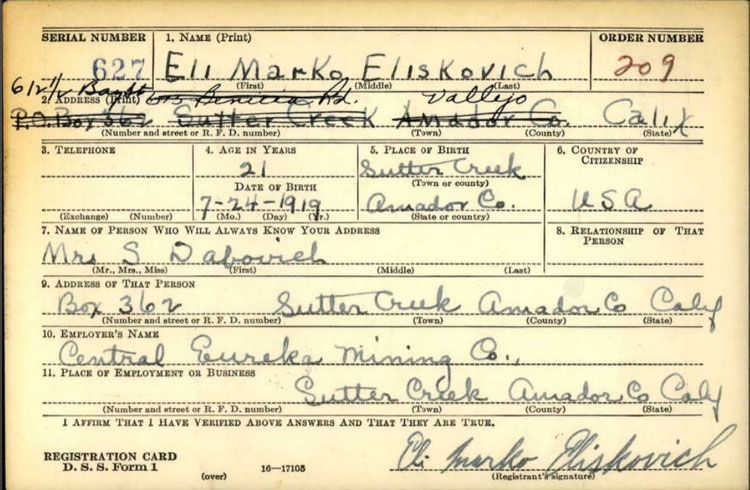 SERIAL NUMBER 1. NAME (Print) ORDER NUMBER
627 Eli Marko Eliskovich 209
(First) (Middle) (Last)
612 1/2
2. ADDRESS (Print) Benicia Rd. Vallejo
P.O. Box 362 Sutter Creek Amador Co. Calif
(Number and street or R. F. D. number) (Town) (County) (State)
3. TELEPHONE 4. AGE IN YEARS 5. PLACE OF BIRTH 6. COUNTRY OF CITIZENSHIP
21 Sutter Creek
DATE OF BIRTH (Town or county)
7-24-1919 Amador Co. USA
(Exchange) (Number) (Mo.) (Day) (Yr.) (State or country)
7. NAME OF PERSON WHO WILL ALWAYS KNOW YOUR ADDRESS 8. RELATIONSHIP OF THAT PERSON
Mrs S Dabovich
(Mr., Mrs., Miss) (First) (Middle) (Last)
9. ADDRESS OF THAT PERSON
Box 362 Sutter Creek Amador Co Calif
(Number and street or R. F. D. number) (Town) (County) (State)
10. EMPLOYER'S NAME
Central Eureka Mining Co.,
11. PLACE OF EMPLOYMENT OR BUSINESS
Sutter Creek Amador Co Calif
(Number and street or R. F. D. number) (Town) (County) (State)
I AFFIRM THAT I HAVE VERIFIED ABOVE ANSWERS AND THAT THEY ARE TRUE.
REGISTRATION CARD Eli Marko Eliskovich
D. S. S. Form 1 (over) 16—17105 (Registrant's signature)